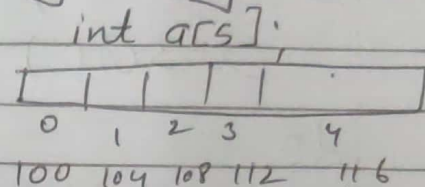 int a[5];
0 1 2 3 4
100 104 108 112 116